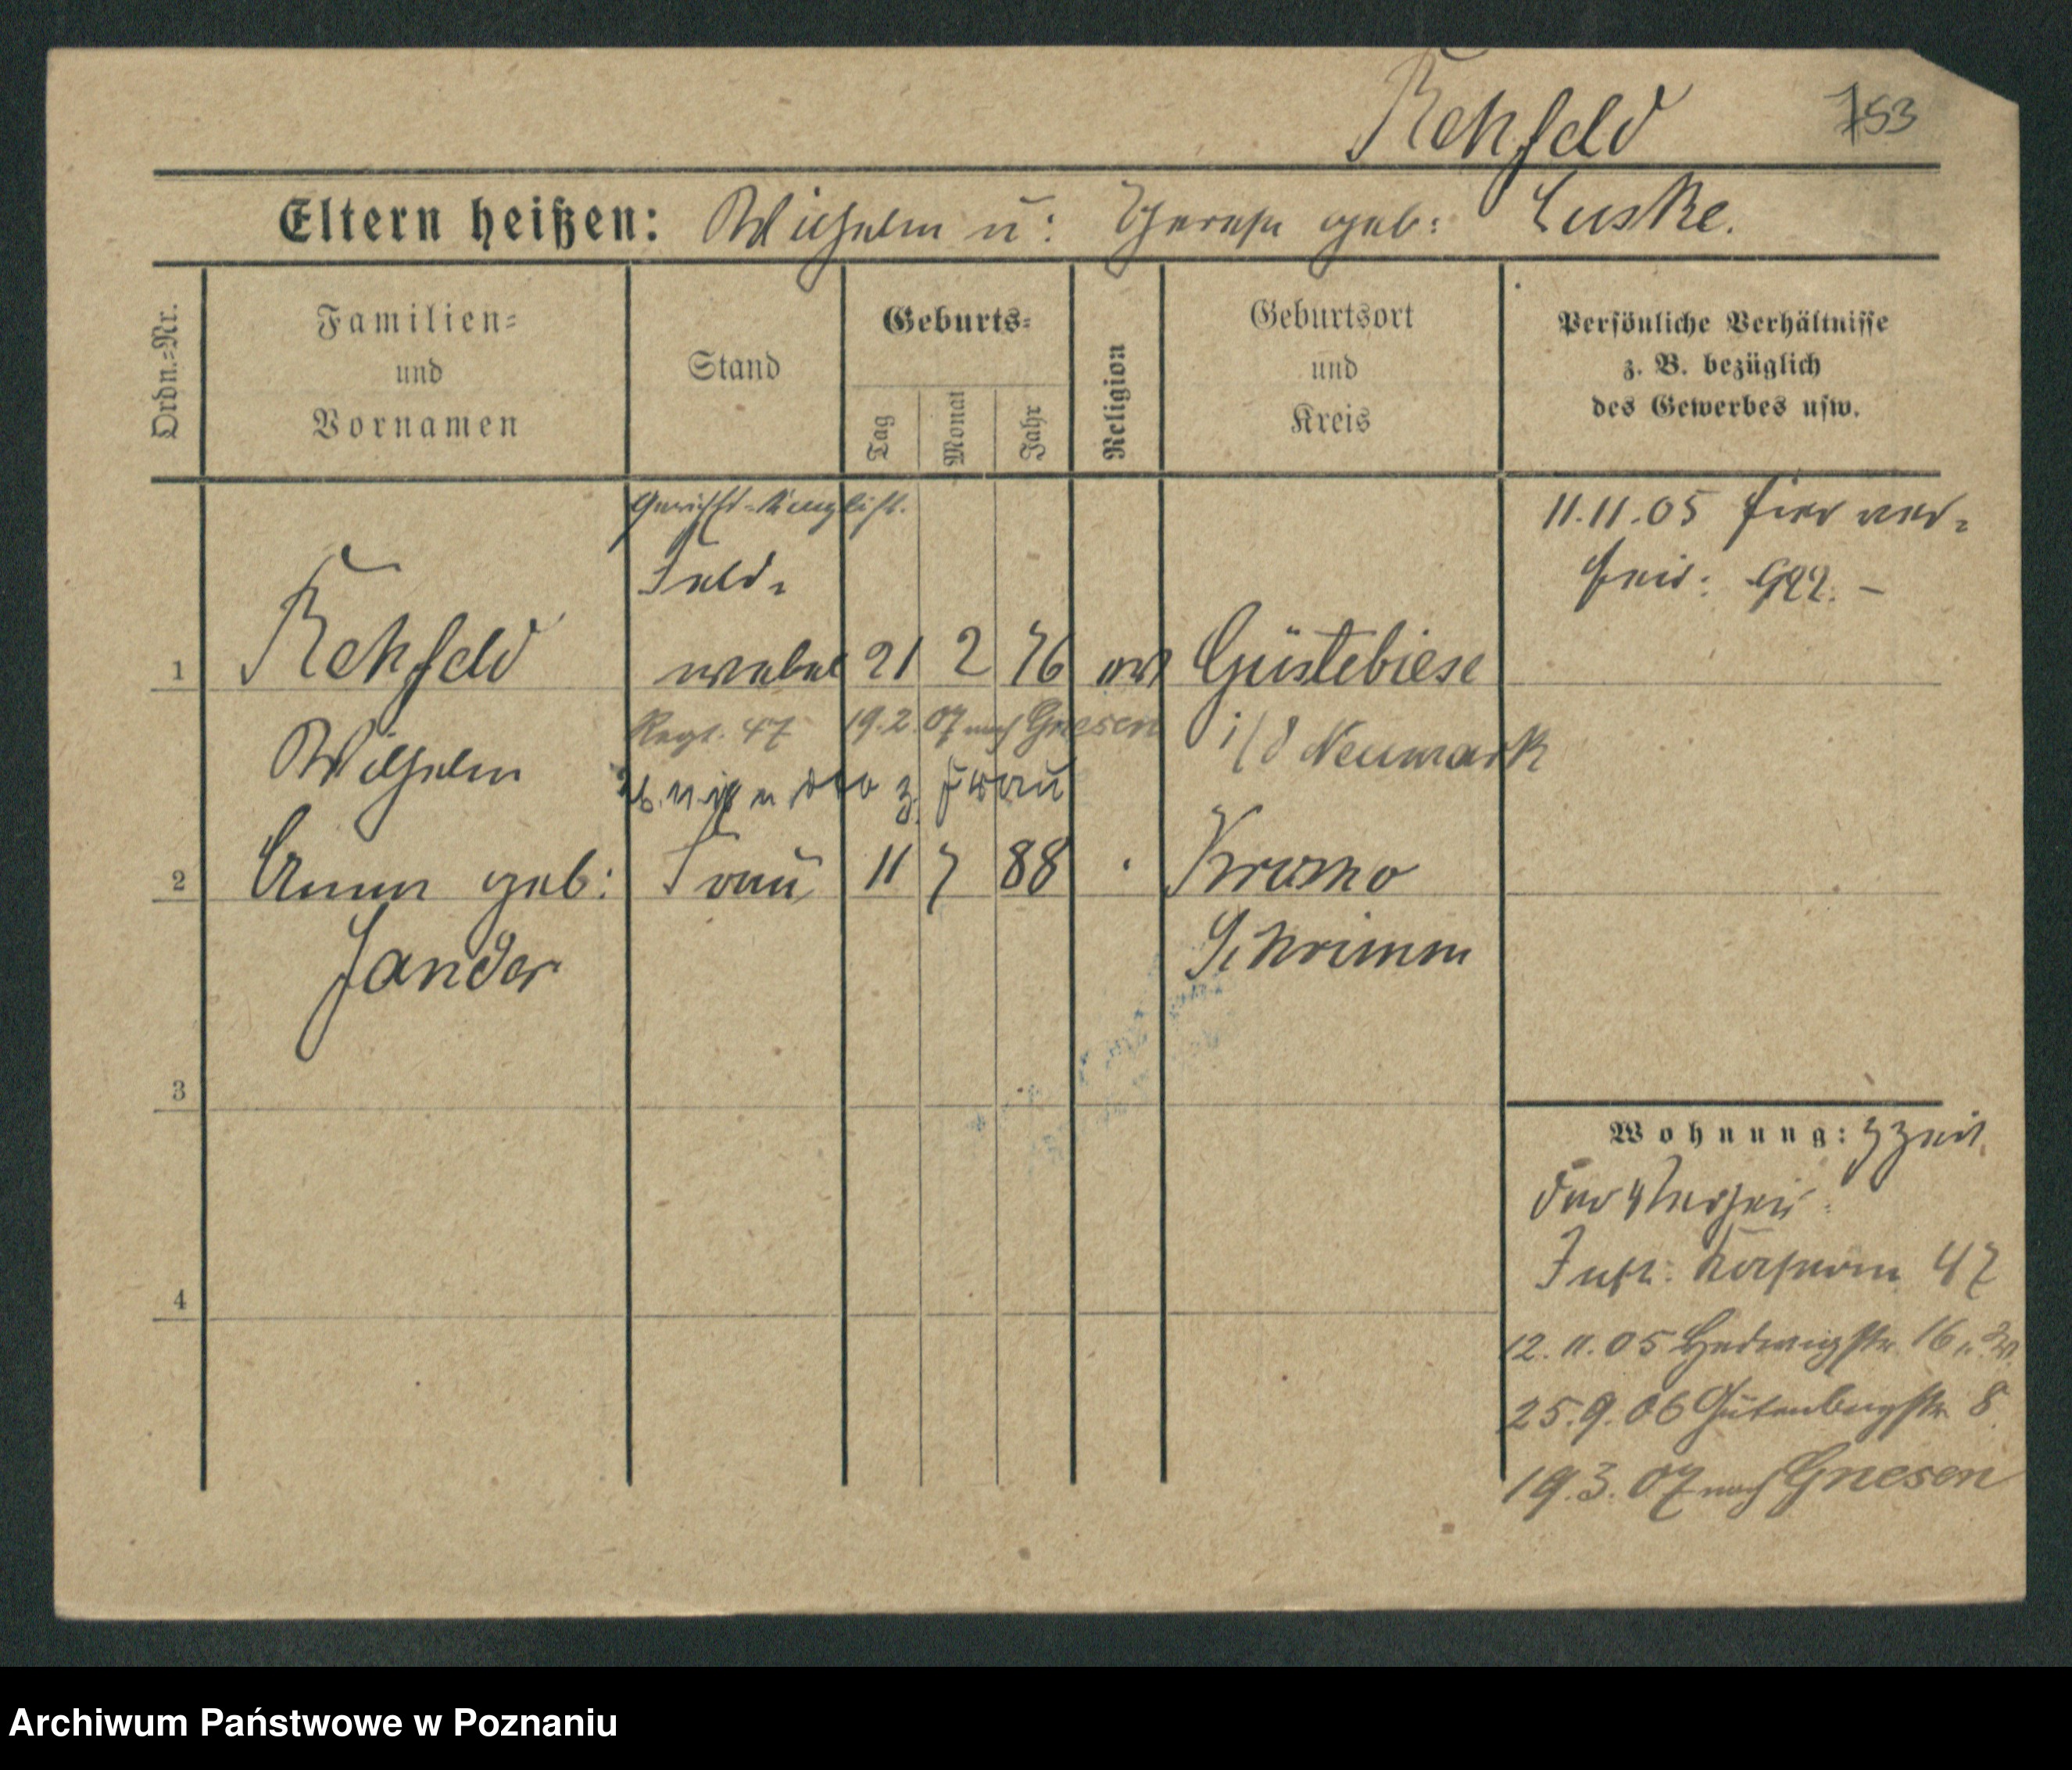 Rehfeld 753
Eltern heißen: Wilhelm u: Therese geb: Luske.
Ordn.=Nr.
Familien=
und
Vornamen
Stand
Geburts=
Tag
Monat
Jahr
Religion
Geburtsort
und
Kreis
Persönliche Verhältnisse
z. B. bezüglich
des Gewerbes usw.
11.11.05 hier ver-
heir:
Feld-
1 Rehfeld webel 21 2 76 ev Güstebiese
Wilhelm Regt. 47 19.2.07 nach Gnesen i/d Neumark
z. Frau
2 Anna geb: Frau 11 7 88 Kromo
Jander Schrimm
3
4
Wohnung: z Zeit
Inft: Kaserne 47
12.11.05 Hedwigstr 16
25.9.06 Gutenbergstr 8
19.3.07 nach Gnesen
Archiwum Państwowe w Poznaniu